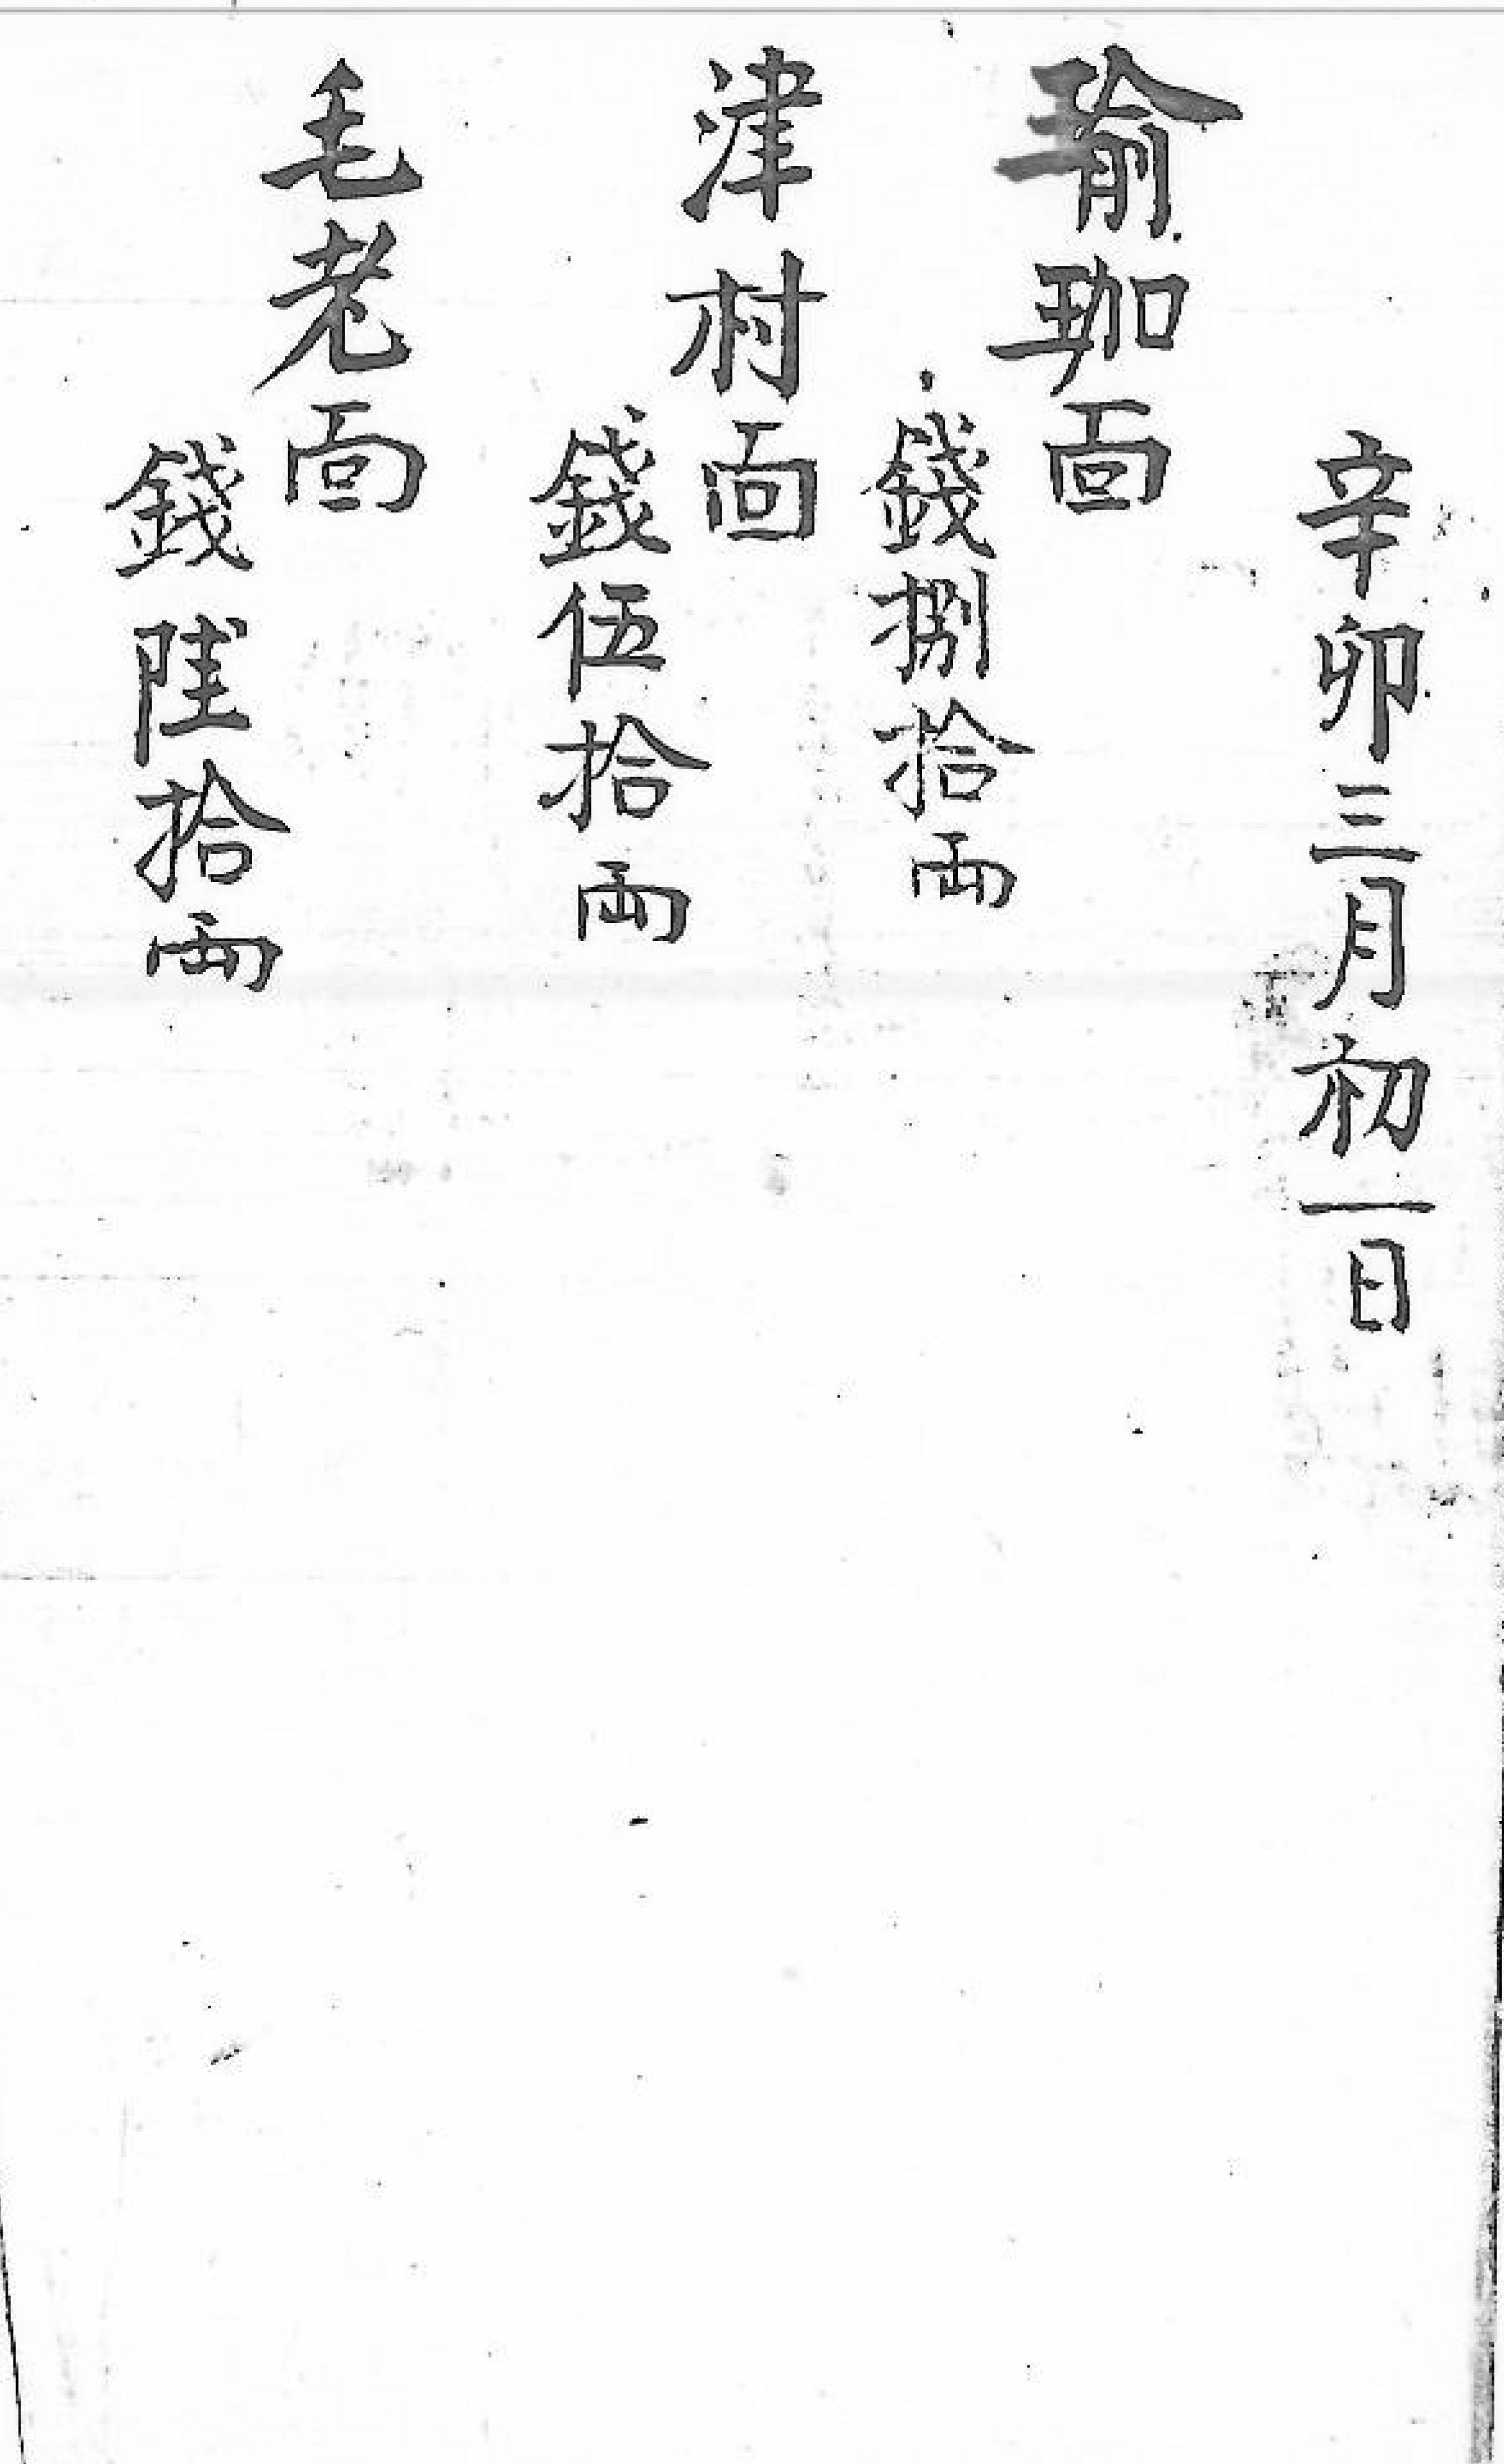 辛卯三月初一日
瑜珈面
錢捌拾両
津村面
錢伍拾両
毛老面
錢陸拾両